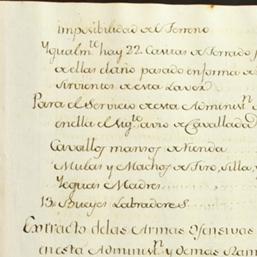 imposibilidad de el Terreno
Ygualm.te hay 22. Casitas de Terrado
de ellas el año pasado en forma de
Sirvientes de esta Lavor
Para el Servicio de esta Administ.n
en ella el sig.te avio de Cavallada
Cavallos mansos de Rienda
Mulas y Machos de Tiro, Silla, y
Yeguas Madres
Bueyes Labradores
Extracto de las Armas Ofensivas
en esta Administ.n y demas Ram